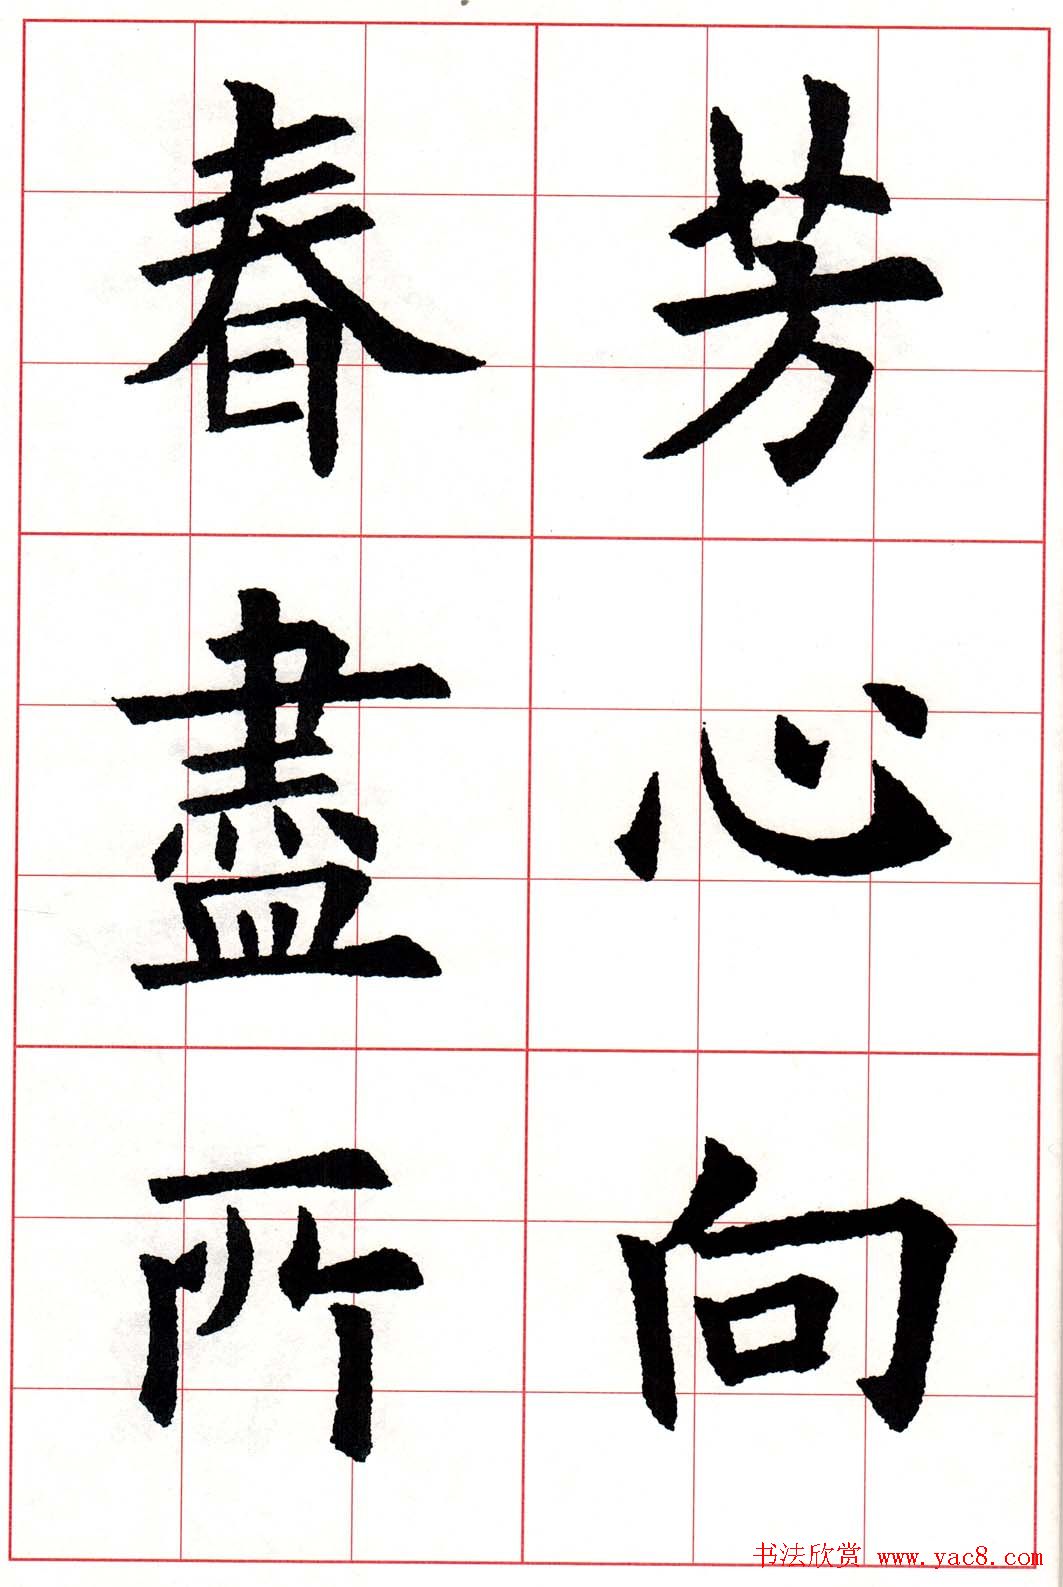 芳心向
春盡所
书法欣赏 www.yac8.com